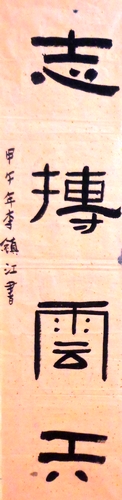 志搏雲天
甲午年李鎮江書